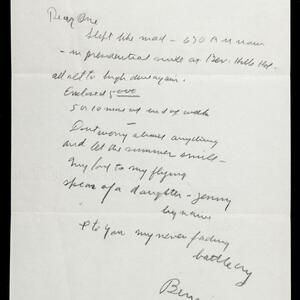 Dear One
Slept like mad - 630 A M now
- in presidential suite at Bev. Hills Hot.
all set to high dive again.
Enclosed 5000
5 or 10 more at end of week
Dont worry about anything
and let the summer smile -
My love to my flying
spear of a daughter - Jenny
by name
& to you my never fading
battle cry
Ben